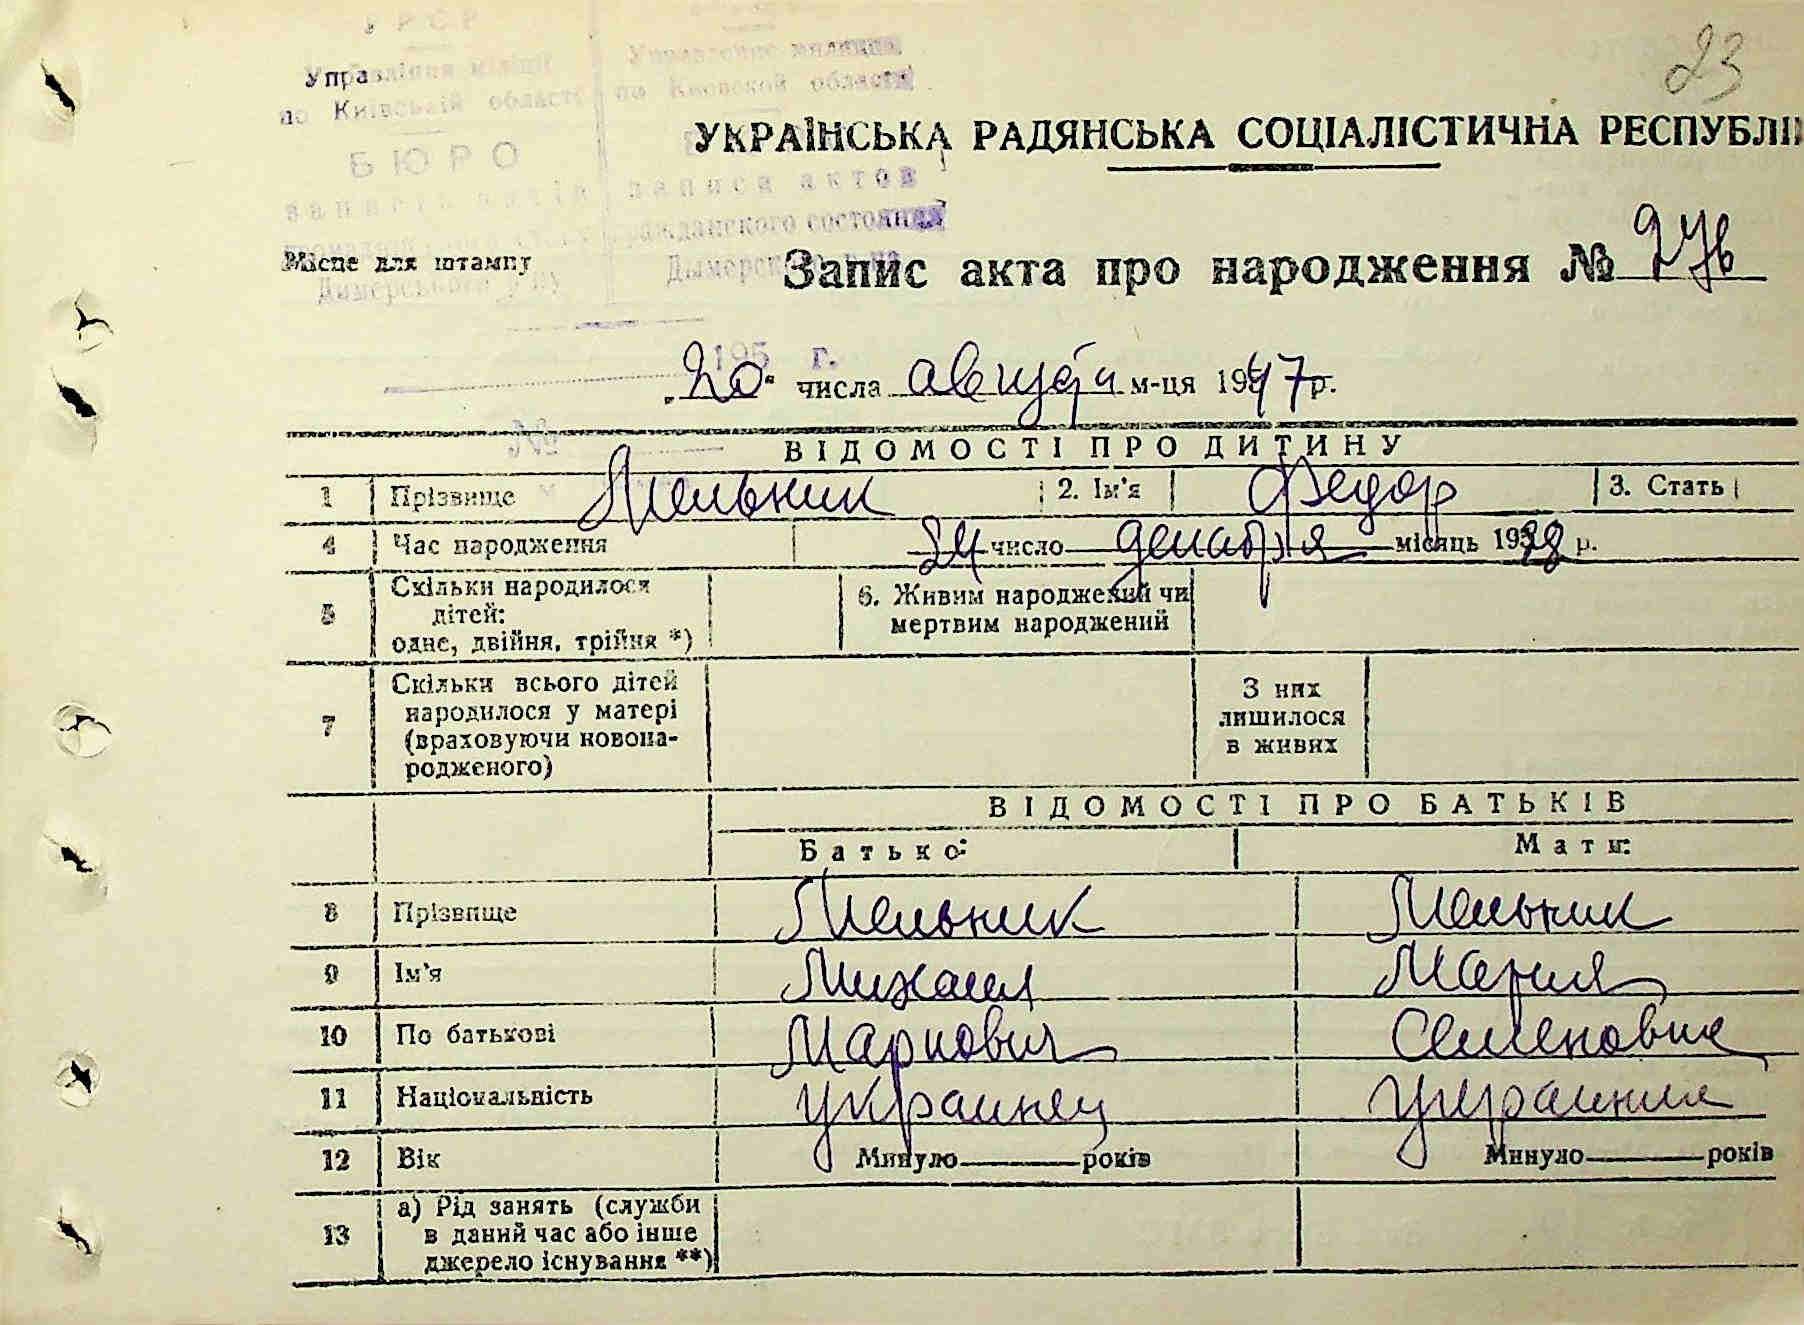 23
УРСР
Управління міліції
по Київській області
БЮРО
запис актів
громадянського стану
Димерського р-ну
Управление милиции
по Киевской области
записи актов
гражданского состояния
Дымерского р-на
195 г.
№
УКРАЇНСЬКА РАДЯНСЬКА СОЦІАЛІСТИЧНА РЕСПУБЛІ
Місце для штампу
Запис акта про народження №
20 числа августа м-ця 1947 р.
ВІДОМОСТІ ПРО ДИТИНУ
1 Прізвище Мельник 2. Ім'я Федор 3. Стать
4 Час народження 24 число декабря місяць 1938 р.
5 Скільки народилося дітей: одне, двійня, трійня *) 6. Живим народжений чи мертвим народжений
7 Скільки всього дітей народилося у матері (враховуючи новона-родженого) З них лишилося в живих
ВІДОМОСТІ ПРО БАТЬКІВ
Батько: Мати:
8 Прізвище Мельник Мельник
9 Ім'я Михаил Мария
10 По батькові Маркович Семеновна
11 Національність украинец украинка
12 Вік Минуло років Минуло років
13 а) Рід занять (служби в даний час або інше джерело існування **)